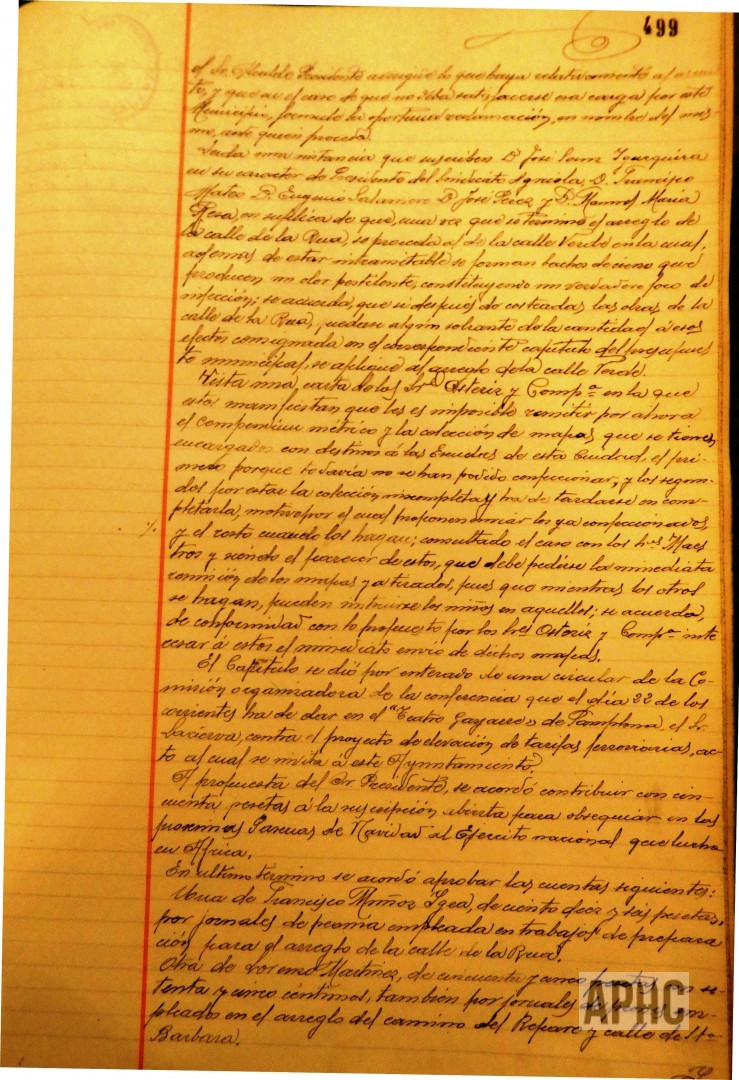 499
el Sr. Alcalde Presidente averigüe lo que haya relativamente al asun-
to, y que en el caso de que no deba satisfacerse esa carga por este
Municipio, formule la oportuna reclamación, en nombre del mis-
mo, ante quien proceda.
Leida una instancia que suscriben Dn José Sanz
en su caracter de Presidente del Sindicato Agricola, D. Francisco
Mateo D. Eugenio Salamero D. José Perez y D. Manuel Maria
Rosa, en suplica de que, una vez que se termine el arreglo de
la calle de la Rua, se proceda al de la calle Verde en la cual,
ademas de estar intransitable se forman baches de cieno que
producen un olor pestilente, constituyendo un verdadero foco de
infección; se acuerda, que si después de costeadas las obras de la
calle de la Rua, quedase algún sobrante de la cantidad á esos
efectos consignada en el correspondiente capitulo del presupues
to municipal, se aplique al arreglo de la calle Verde.
Vista una carta de los Sres Osteriz y Compª en la que
estos manifiestan que les es imposible remitir por ahora
el compendium métrico y la colección de mapas que se tienen
encargados con destino á las Escuelas de esta Ciudad, el pri-
mero porque todavía no se han podido confeccionar, y los segun-
dos por estar la colección incompleta y ha de tardarse en com-
pletarla, motivo por el cual proponen enviar los ya confeccionados
y el resto cuando los hagan; consultado el caso con los Sres Maes
tros y siendo el parecer de estos, que debe pedirse la inmediata
remisión de los mapas ya tirados, pues que mientras los otros
se hagan, pueden instruirse los niños en aquellos; se acuerda,
de conformidad con lo propuesto por los Sres Osteriz y Compª inte
resar á estos el inmediato envio de dichos mapas.
El Capitulo se dió por enterado de una circular de la Co-
misión organizadora de la conferencia que el día 22 de los
corrientes ha de dar en el "Teatro Gayarre" de Pamplona, el Sr.
Lacierva, contra el proyecto de elevación de tarifas ferroviarias, ac-
to al cual se invita á este Ayuntamiento.
A propuesta del Sr. Presidente, se acordó contribuir con cin-
cuenta pesetas á la suscripción abierta para obsequiar en las
proximas Pascuas de Navidad al Ejercito nacional que lucha
en Africa.
En ultimo termino se acordó aprobar las cuentas siguientes:
Una de Francisco Muñoz Igea, de ciento diez y seis pesetas,
por jornales de peonia empleada en trabajos de prepara
ción para el arreglo de la calle de la Rua.
Otra de Lorenzo Martinez, de cincuenta y cinco pesetas con se-
tenta y cinco céntimos, también por jornales de peonia em-
pleado en el arreglo del camino del Reparo y calle de Sta
Barbara.
APHC